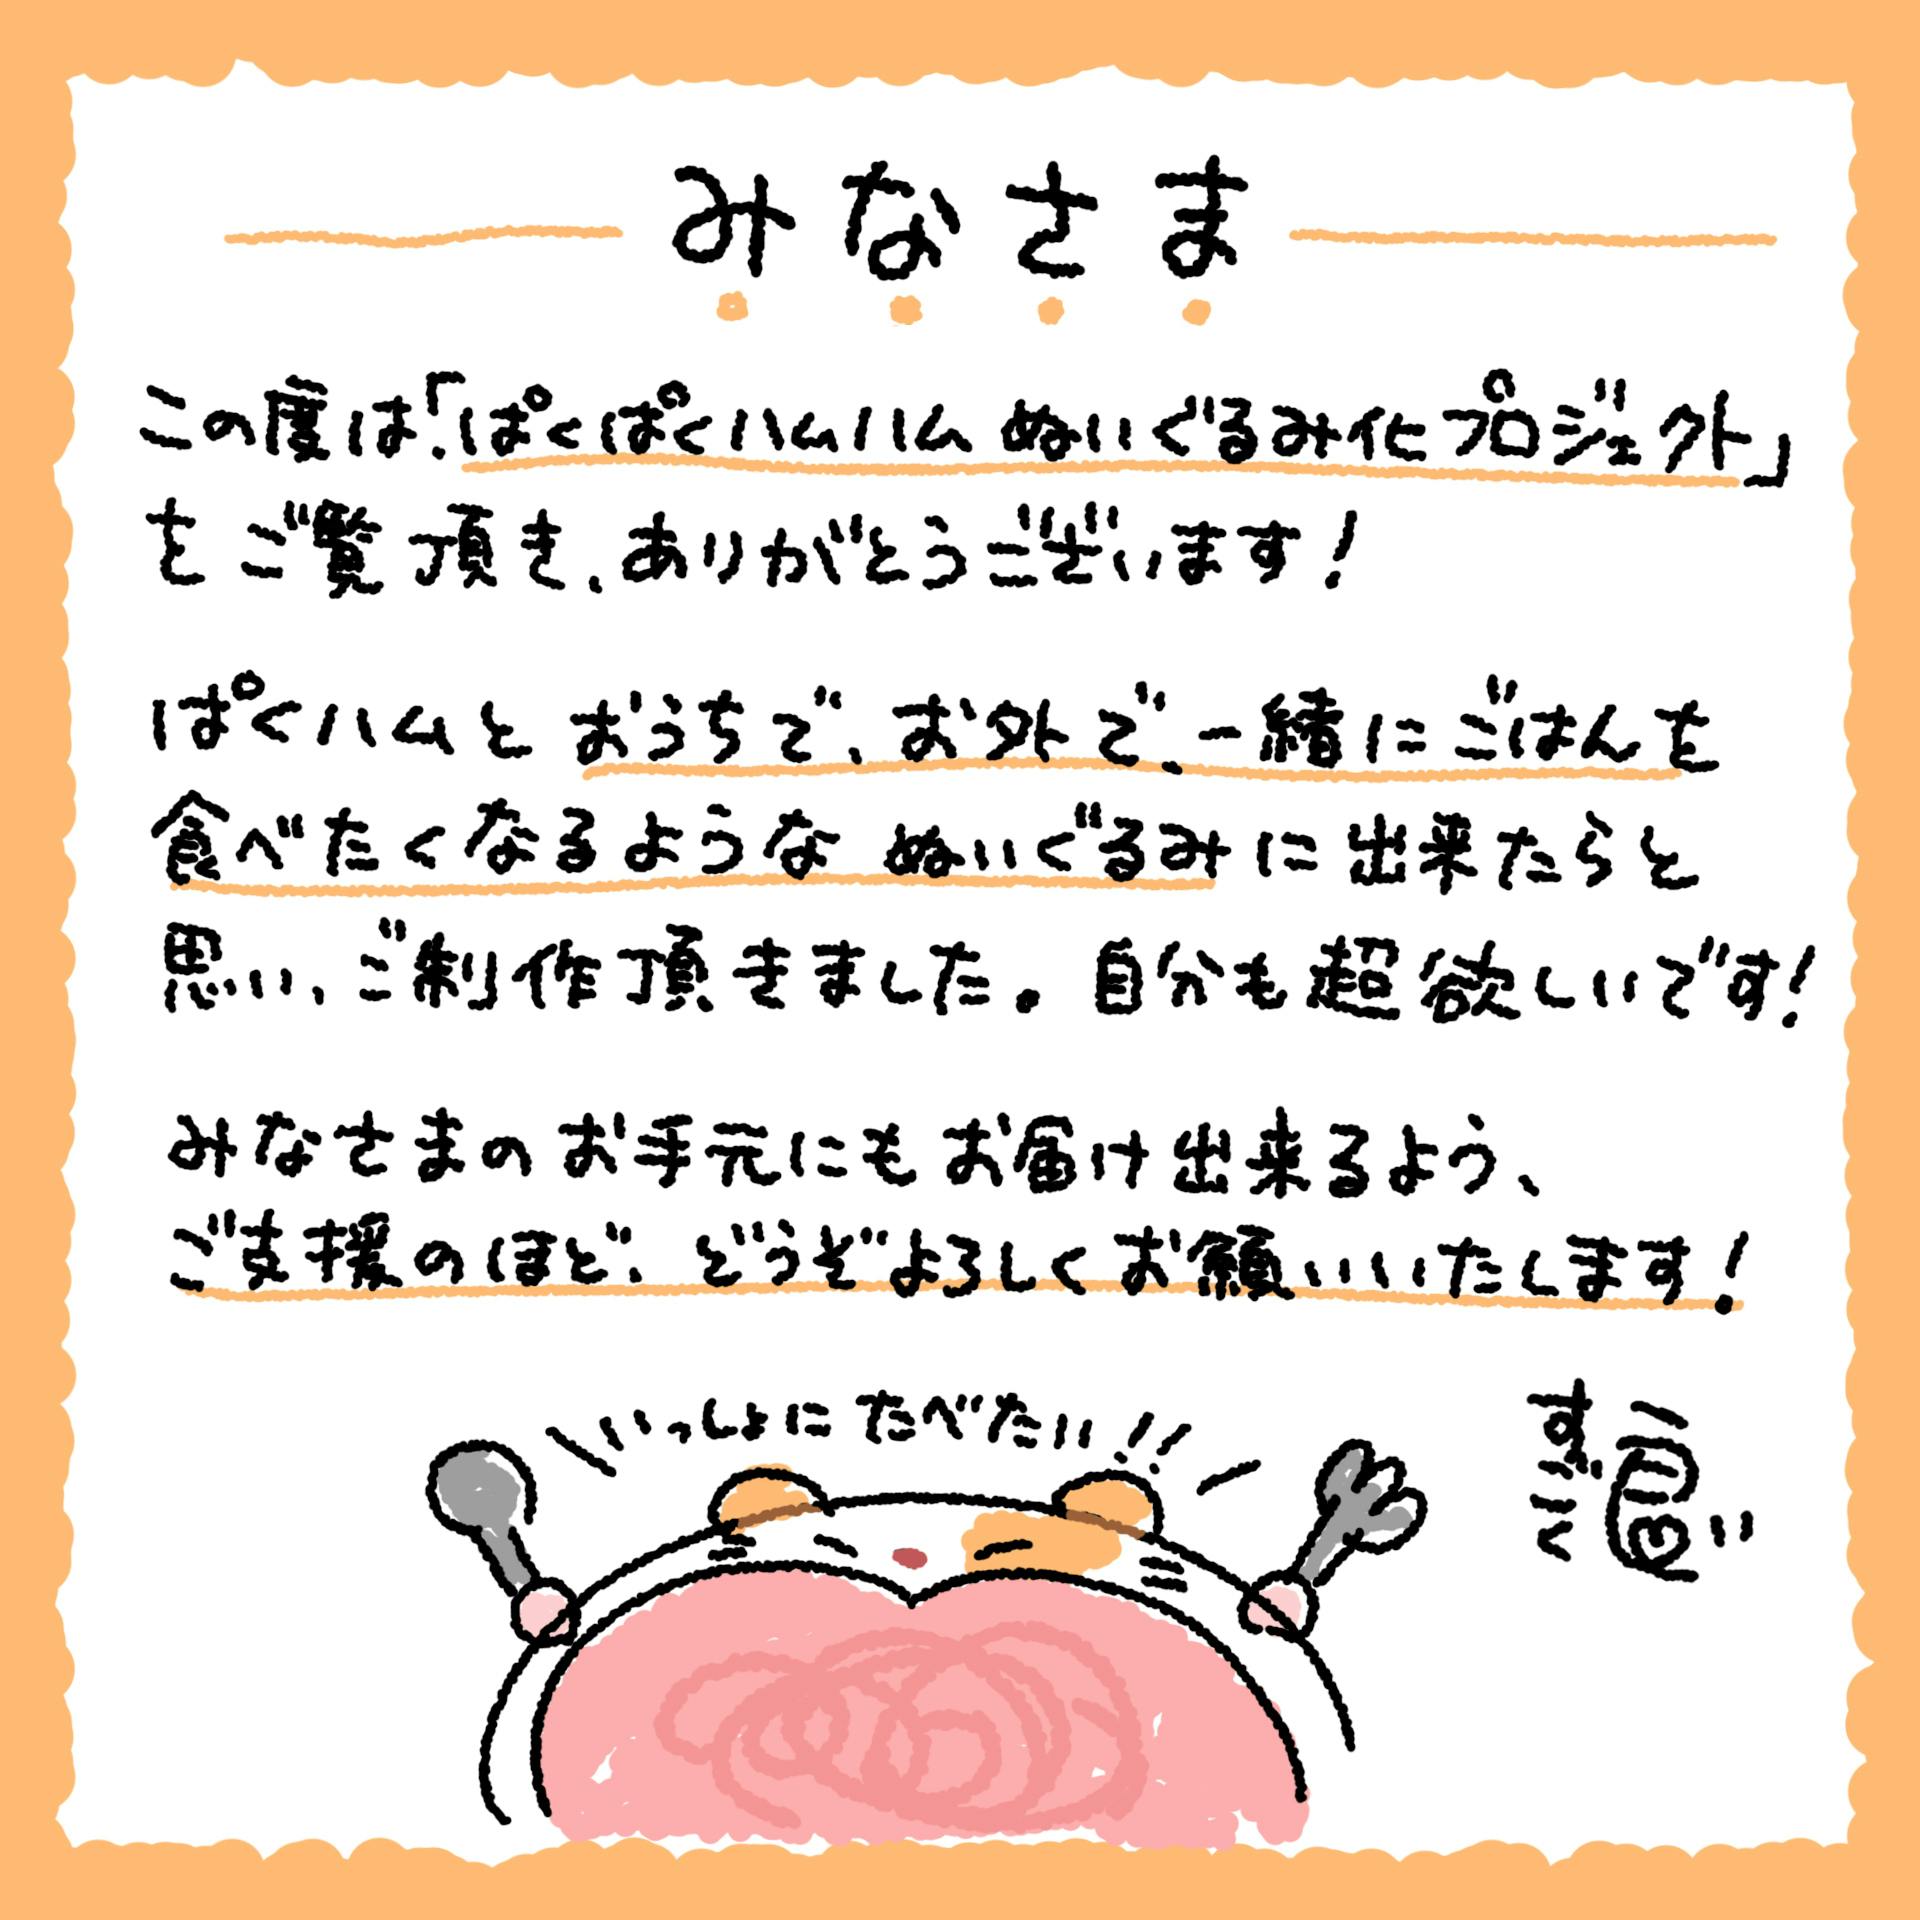 みなさま
この度は、「ぱくぱくハムハム ぬいぐるみ化プロジェクト」
をご覧頂き、ありがとうございます!
ぱくハムと おうちで、お外で、一緒にごはんを
食べたくなるような ぬいぐるみに出来たらと
思い、ご制作頂きました。自分も超欲しいです!
みなさまのお手元にもお届け出来るよう、
ご支援のほど、どうぞよろしくお願いいたします!
いっしょに たべたい!!